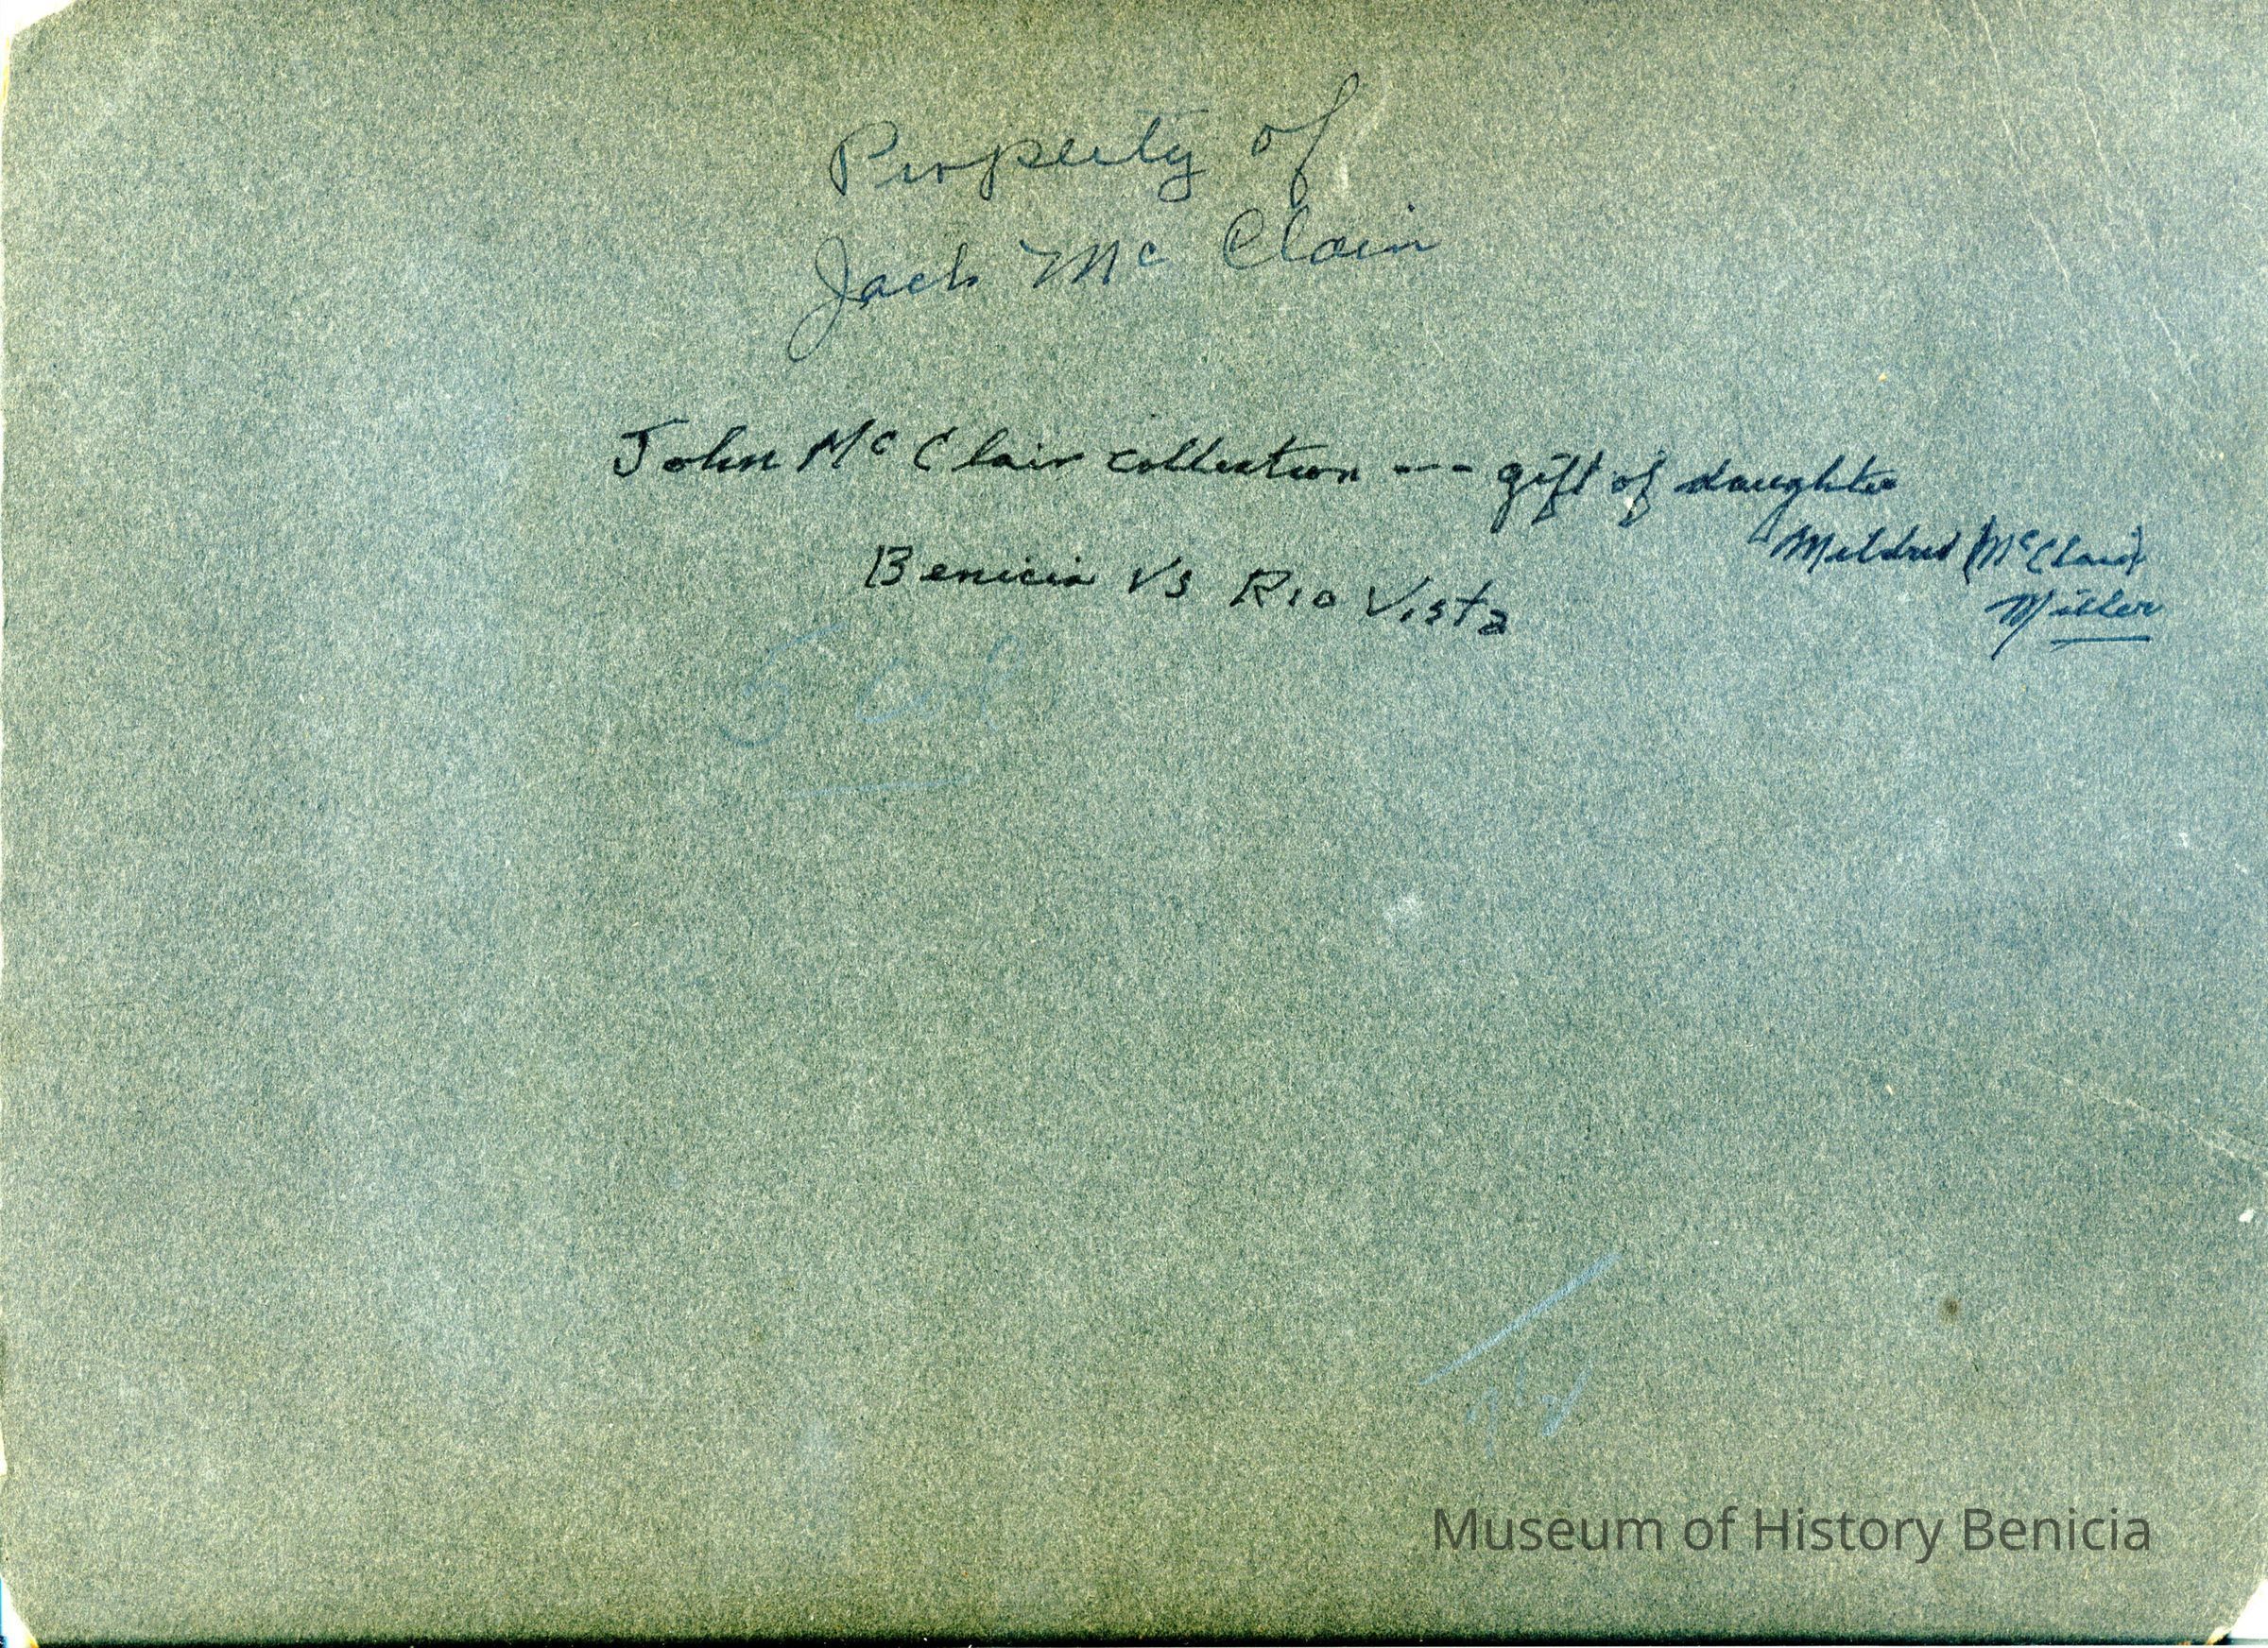 Property of
Jack Mc Clain
John Mc Clain collection --- gift of daughter
Mildred (McClain)
Miller
Benicia Vs Rio Vista
5 Col
Museum of History Benicia